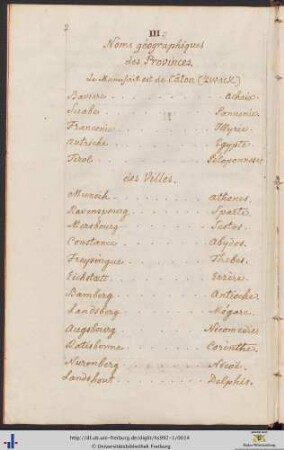 2
III.
Noms géographiques
des Provinces.
Le Manuscrit est de Caton (Zwack)
Bavière . . . . . . . . Achaie.
Suabe . . . . . . . . Pannonie.
Franconie . . . . . . . . Illyrie.
Autriche . . . . . . . . Egypte.
Tirol . . . . . . . . Péloponnese.
des Villes.
Munich . . . . . . . . athenes.
Ravensbourg . . . . . . . . Sparte.
Mersbourg . . . . . . . . Sestos.
Constance . . . . . . . . Abydos.
Freysingue . . . . . . . . Thebes.
Eichstætt . . . . . . . . Erzèra.
Bamberg . . . . . . . . Antioche.
Landsberg . . . . . . . . Mégare.
Augsbourg . . . . . . . . Nicomedie.
Ratisbonne . . . . . . . . Corinthe.
Nuremberg . . . . . . . . Nicée.
Landshout . . . . . . . . Delphes.
http://dl.ub.uni-freiburg.de/diglit/hs992-1/0014
© Universitätsbibliothek Freiburg